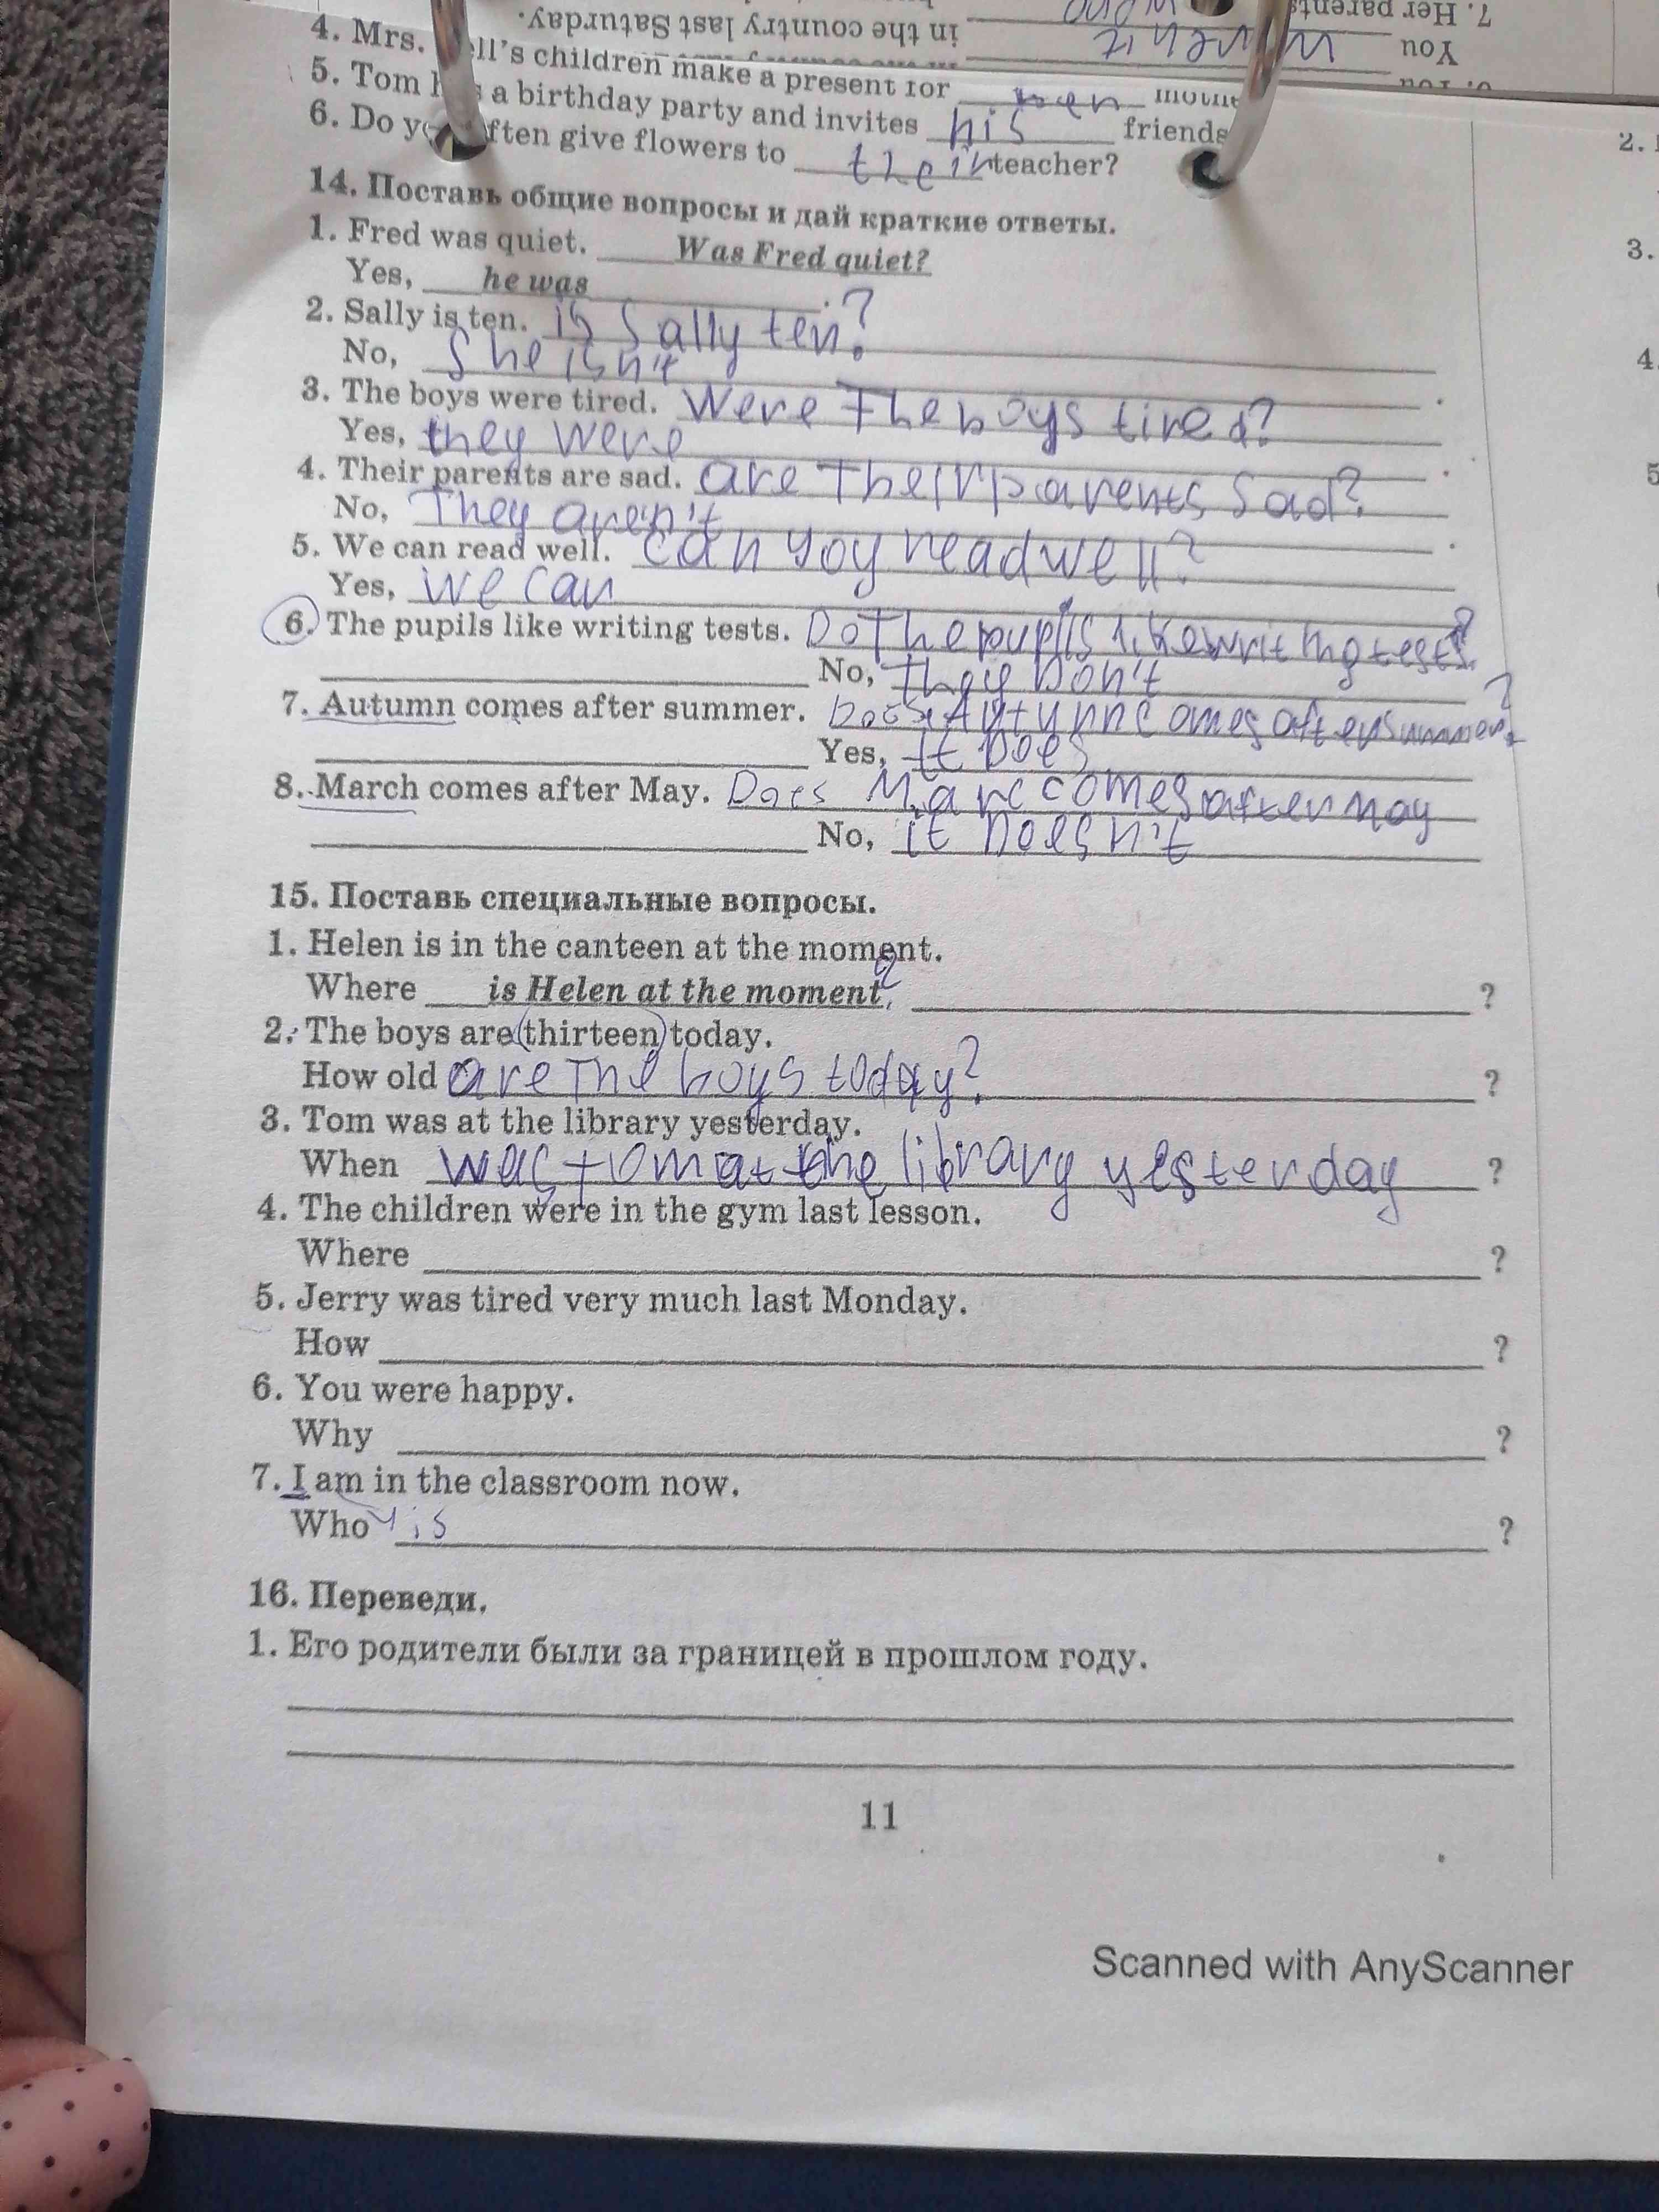 7. Her parents
You weren't
in the country last Saturday.
4. Mrs. ell's children make a present for
5. Tom has a birthday party and invites his friends
6. Do you often give flowers to their teacher?
14. Поставь общие вопросы и дай краткие ответы.
1. Fred was quiet. Was Fred quiet?
Yes, he was.
2. Sally is ten. is Sally ten?
No, She isn't
3. The boys were tired. Were The boys tired?
Yes, they were
4. Their parents are sad. are Their parents Sad?
No, They aren't
5. We can read well. can yoy read well?
Yes, we can
6. The pupils like writing tests. Do The pupils like writing tests?
No, they Don't
7. Autumn comes after summer. Does Aytymn comes after summer?
Yes, it Does
8. March comes after May. Does Marc comes after May
No, it Doesn't
15. Поставь специальные вопросы.
1. Helen is in the canteen at the moment.
Where is Helen at the moment? ?
2. The boys are thirteen today.
How old are The boys today? ?
3. Tom was at the library yesterday.
When was tom at the library yesterday ?
4. The children were in the gym last lesson.
Where ?
5. Jerry was tired very much last Monday.
How ?
6. You were happy.
Why ?
7. I am in the classroom now.
Who is ?
16. Переведи.
1. Его родители были за границей в прошлом году.
11
Scanned with AnyScanner
2.
3.
4.
5